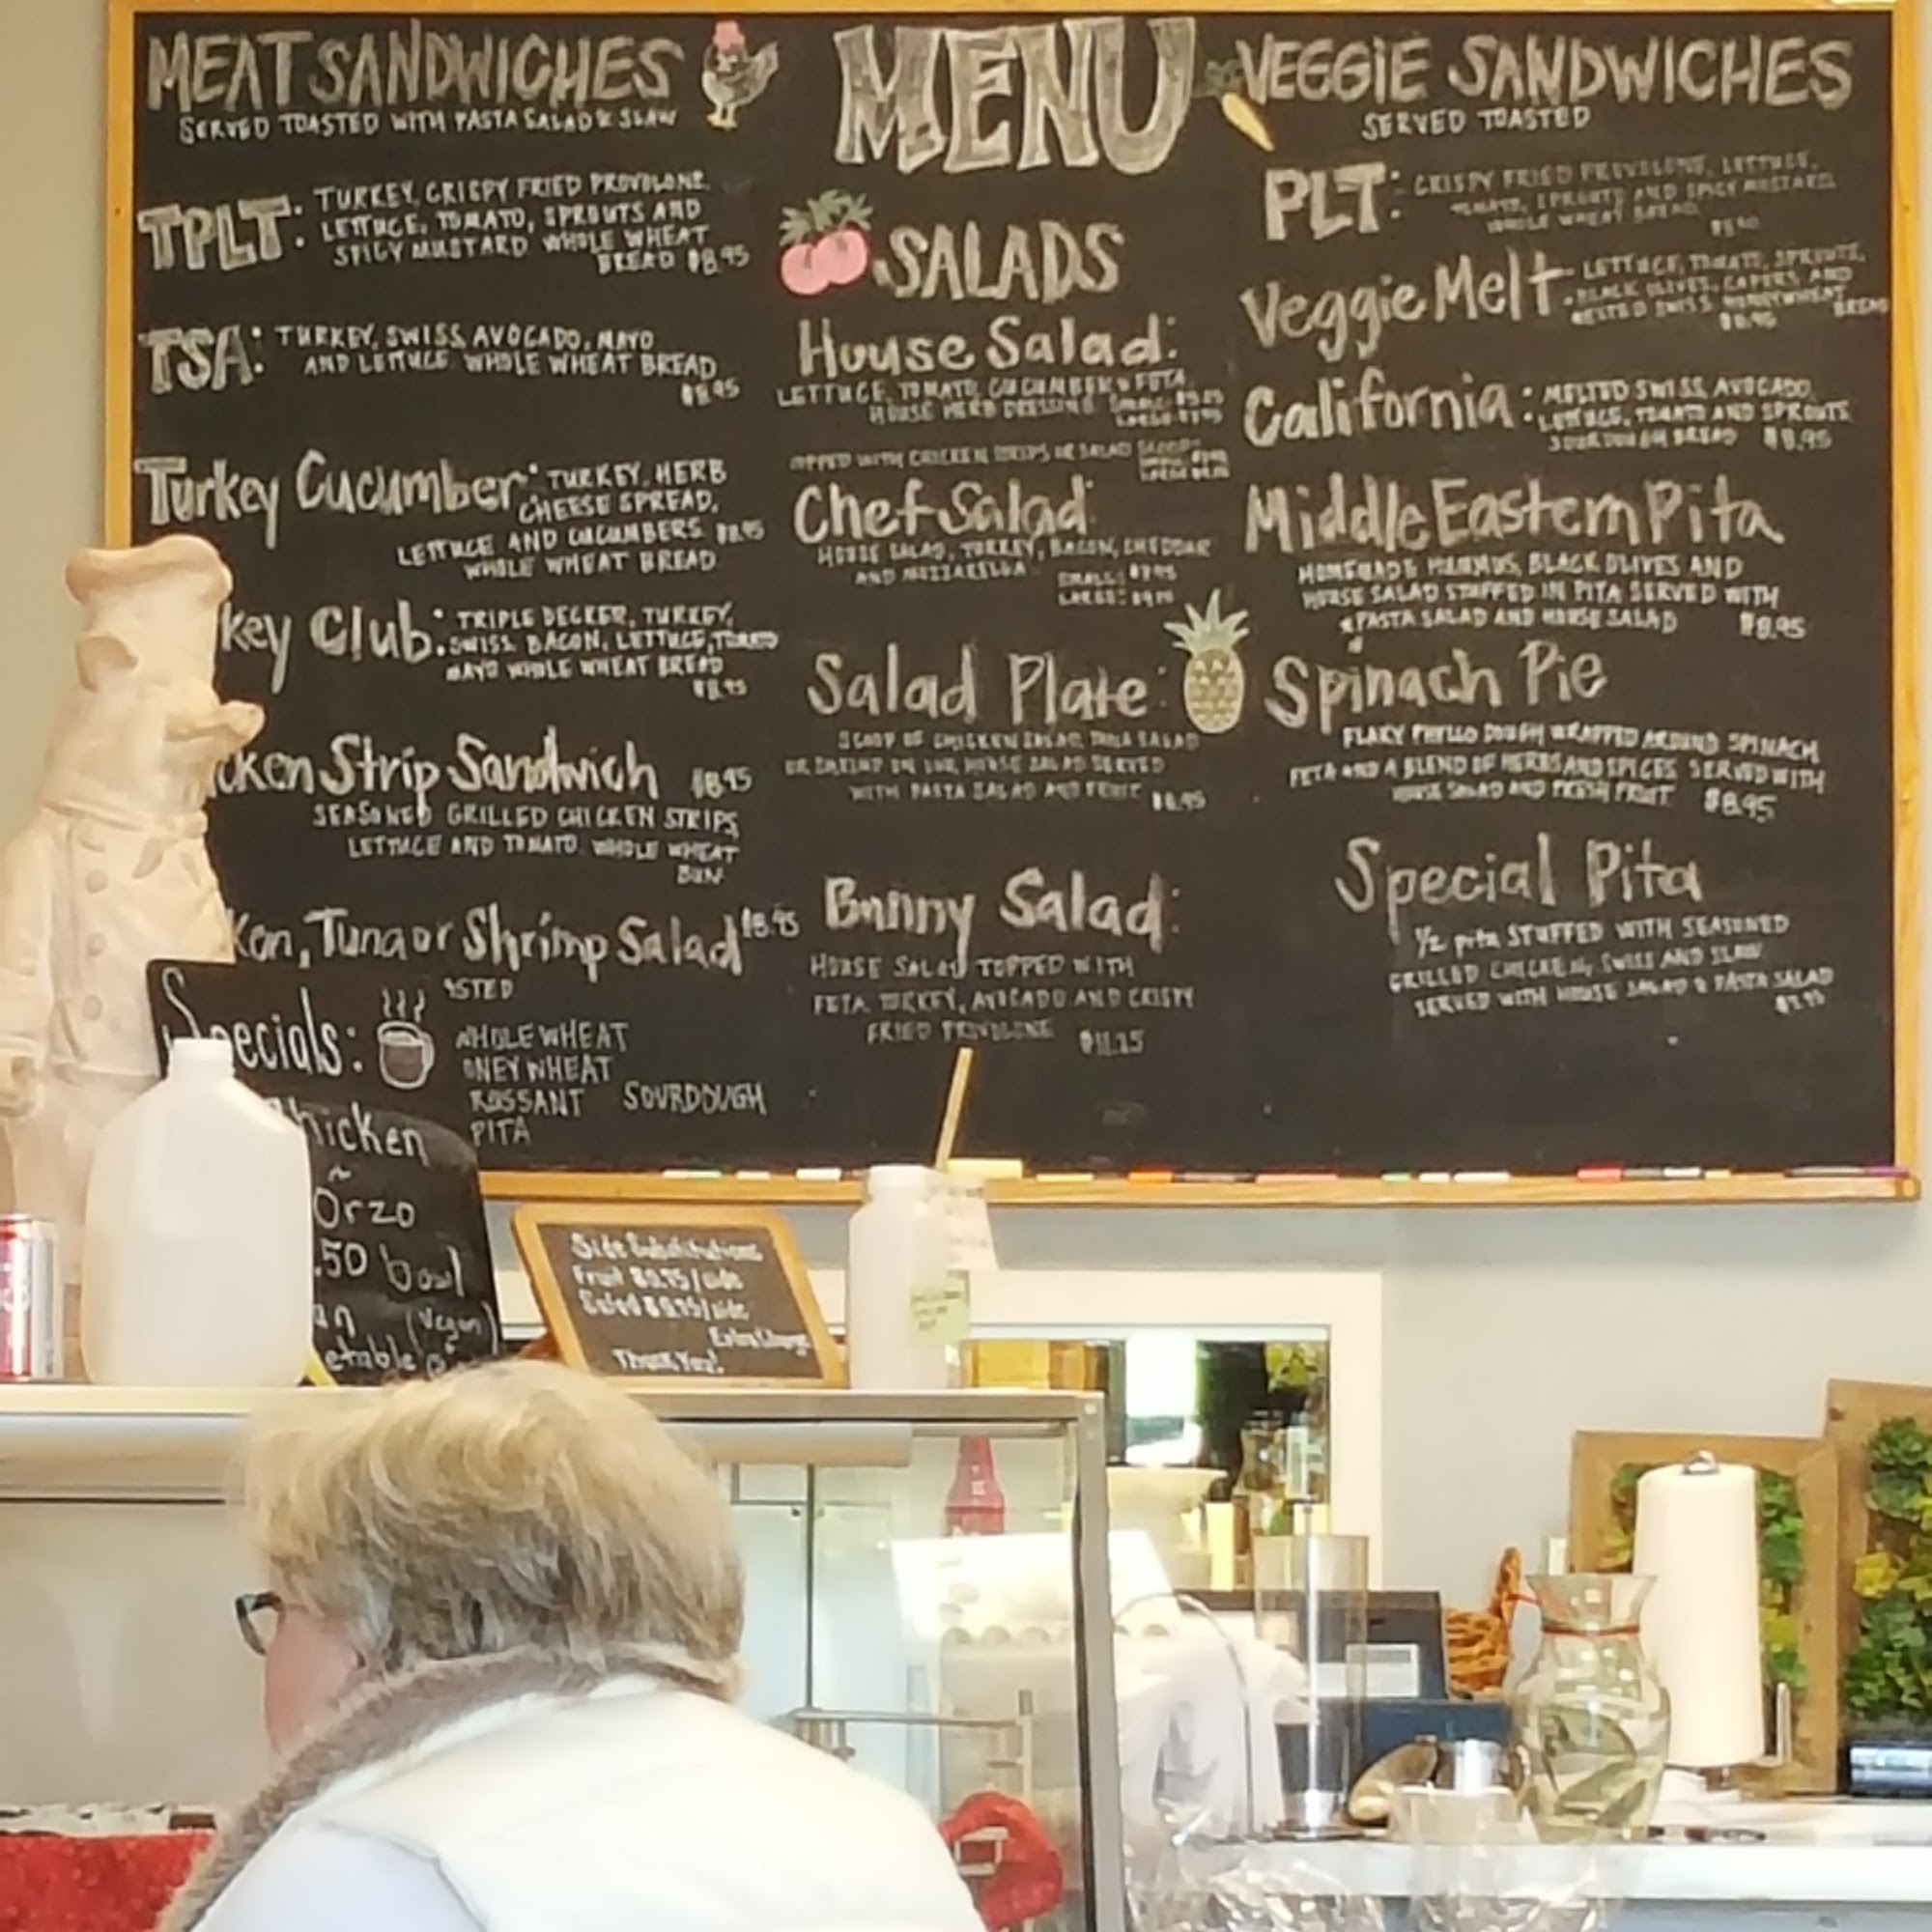 MEAT SANDWICHES
SERVED TOASTED WITH PASTA SALAD & SLAW
TPLT: TURKEY, CRISPY FRIED PROVOLONE,
LETTUCE, TOMATO, SPROUTS AND
SPICY MUSTARD WHOLE WHEAT
BREAD $8.95
TSA: TURKEY, SWISS, AVOCADO, MAYO
AND LETTUCE. WHOLE WHEAT BREAD
$8.95
Turkey Cucumber: TURKEY, HERB
CHEESE SPREAD,
LETTUCE AND CUCUMBERS $8.95
WHOLE WHEAT BREAD
key Club: TRIPLE DECKER, TURKEY,
SWISS, BACON, LETTUCE, TOMATO
MAYO WHOLE WHEAT BREAD
$8.95
cken Strip Sandwich $8.95
SEASONED GRILLED CHICKEN STRIPS,
LETTUCE AND TOMATO. WHOLE WHEAT
BUN
ken, Tuna or Shrimp Salad $8.95
STED
WHOLE WHEAT
ONEY WHEAT
ROSSANT SOURDOUGH
PITA
MENU
SALADS
House Salad:
LETTUCE, TOMATO, CUCUMBER & FETA.
HOUSE HERB DRESSING
TOPPED WITH CHICKEN STRIPS OR SALAD SCOOP:
Chef Salad:
HOUSE SALAD, TURKEY, BACON, CHEDDAR
AND MOZZARELLA SMALL: $7.95
LARGE:
Salad Plate:
SCOOP OF CHICKEN SALAD, TUNA SALAD
OR SHRIMP ON OUR HOUSE SALAD SERVED
WITH PASTA SALAD AND FRUIT $8.95
Bunny Salad:
HOUSE SALAD TOPPED WITH
FETA, TURKEY, AVOCADO AND CRISPY
FRIED PROVOLONE $11.25
VEGGIE SANDWICHES
SERVED TOASTED
PLT: CRISPY FRIED PROVOLONE, LETTUCE,
TOMATO, SPROUTS AND SPICY MUSTARD.
WHOLE WHEAT BREAD
Veggie Melt LETTUCE, TOMATO, SPROUTS,
BLACK OLIVES, CAPERS AND
MELTED SWISS. HONEYWHEAT BREAD
$8.95
California: MELTED SWISS, AVOCADO,
LETTUCE, TOMATO AND SPROUTS
SOURDOUGH BREAD $8.95
Middle Eastern Pita
HOMEMADE HUMMUS, BLACK OLIVES AND
HOUSE SALAD STUFFED IN PITA SERVED WITH
PASTA SALAD AND HOUSE SALAD $8.95
Spinach Pie
FLAKY PHYLLO DOUGH WRAPPED AROUND SPINACH,
FETA AND A BLEND OF HERBS AND SPICES. SERVED WITH
HOUSE SALAD AND FRESH FRUIT $8.95
Special Pita
1/2 pita STUFFED WITH SEASONED
GRILLED CHICKEN, SWISS AND SLAW
SERVED WITH HOUSE SALAD & PASTA SALAD
$7.95
Specials:
hicken
~
Orzo
.50 bowl
an (Vegan)
etable
Side Substitutions
Fruit $0.75/side
Salad $0.75/side
Extra Charge
Thank You!